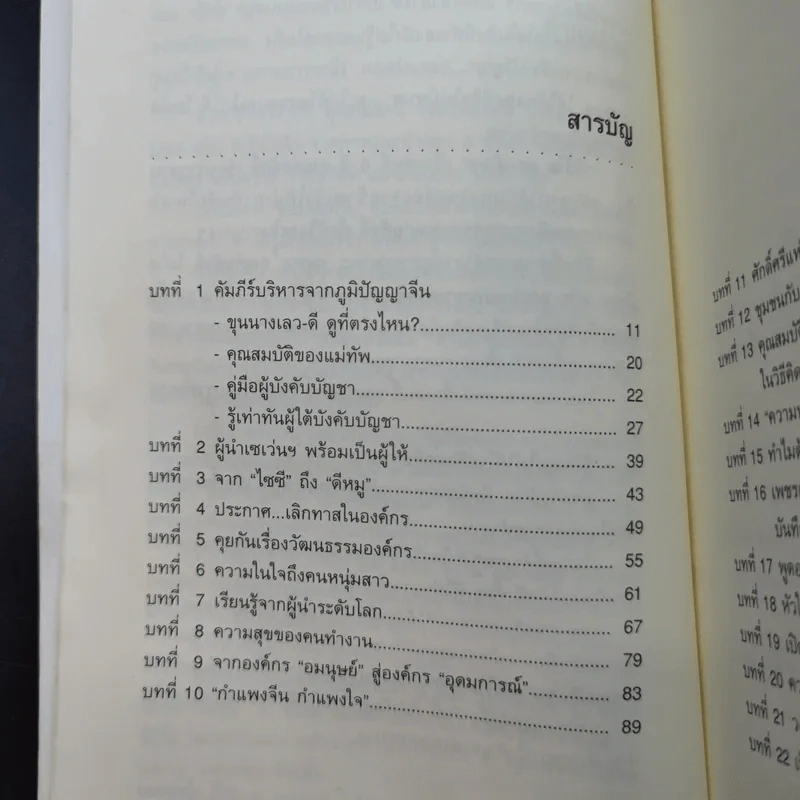 สารบัญ
บทที่ 1 คัมภีร์บริหารจากภูมิปัญญาจีน
- ขุนนางเลว-ดี ดูที่ตรงไหน?........ 11
- คุณสมบัติของแม่ทัพ........ 20
- คู่มือผู้บังคับบัญชา........ 22
- รู้เท่าทันผู้ใต้บังคับบัญชา........ 27
บทที่ 2 ผู้นำเซเว่นฯ พร้อมเป็นผู้ให้........ 39
บทที่ 3 จาก "ไซซี" ถึง "ตีหมู"........ 43
บทที่ 4 ประกาศ...เลิกทาสในองค์กร........ 49
บทที่ 5 คุยกันเรื่องวัฒนธรรมองค์กร........ 55
บทที่ 6 ความในใจถึงคนหนุ่มสาว........ 61
บทที่ 7 เรียนรู้จากผู้นำระดับโลก........ 67
บทที่ 8 ความสุขของคนทำงาน........ 79
บทที่ 9 จากองค์กร "อมนุษย์" สู่องค์กร "อุดมการณ์"........ 83
บทที่ 10 "กำแพงจีน กำแพงใจ"........ 89
บทที่ 11 ศักดิ์ศรี
บทที่ 12 ชุมชนกับ
บทที่ 13 คุณสมบัติ
ในวิธีคิด
บทที่ 14
บทที่ 15 ทำไม
บทที่ 16 เพชร
บันทึ
บทที่ 17 พูด
บทที่ 18 หัวใ
บทที่ 19 เปิ
บทที่ 20 คว
บทที่ 21
บทที่ 22